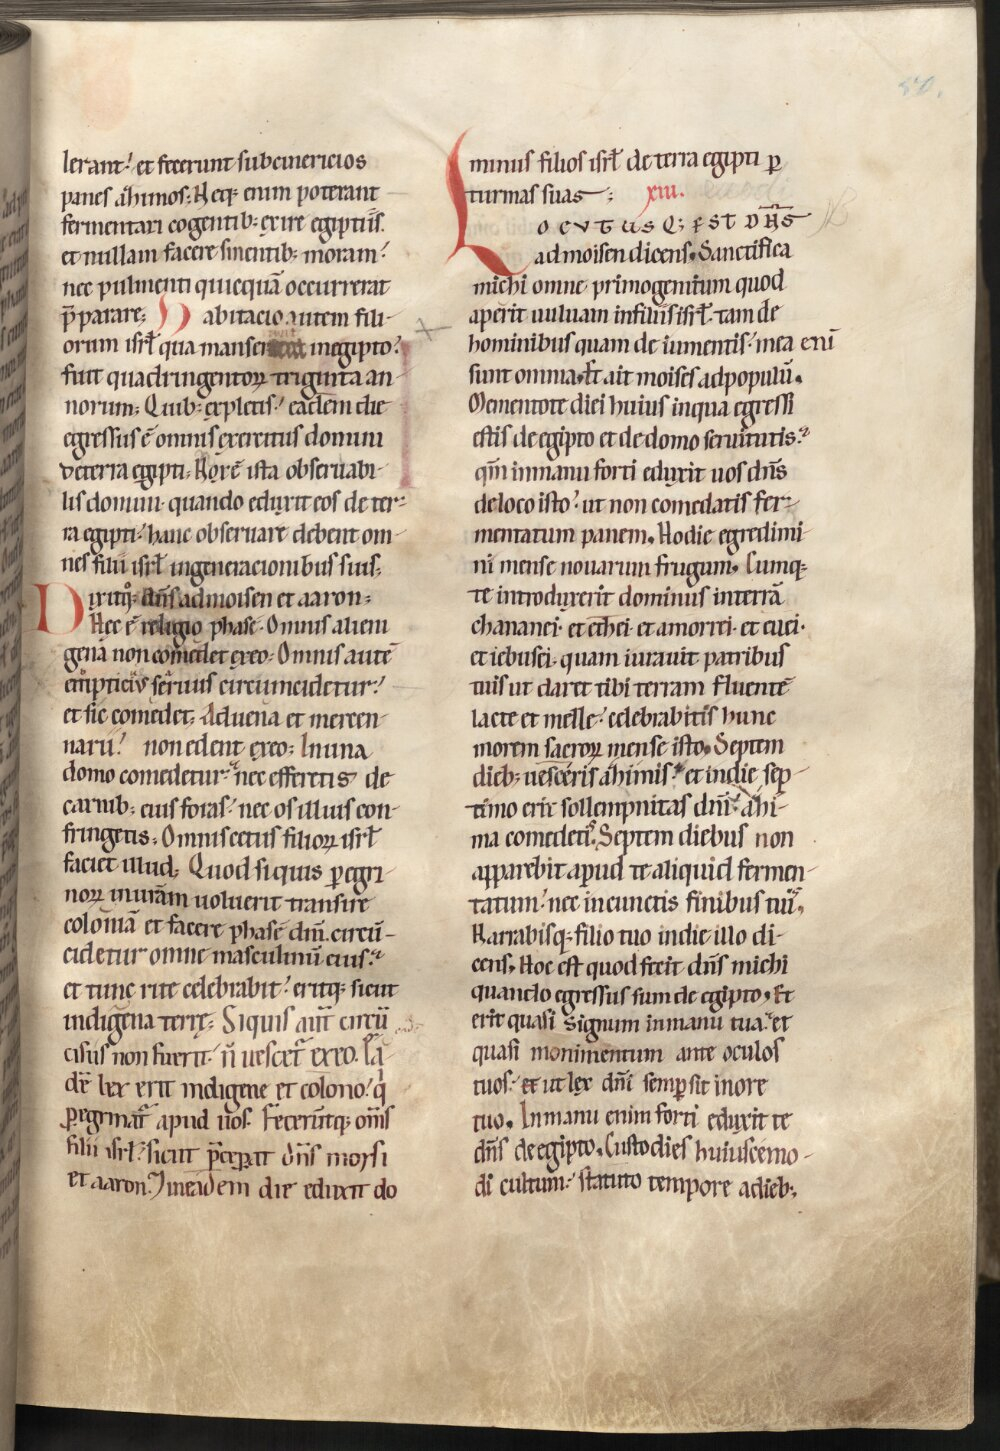 lerant. et fecerunt subcinericios
panes ahimos; Neq; enim poterant
fermentari cogentib; exire egiptiis.
et nullam facere sinentib; moram.
nec pulmenti quicquā occurrerat
p̄parare; Habitacio autem fili-
orum isrł qua manser inegipto.
fuit quadringentoꝝ triginta an-
norum; Quib; expletis. eadem die
egressus ē omnis exercitus domini
de terra egipti; Nox ē ista observabi-
lis domini. quando eduxit eos de ter-
ra egipti. hanc observare debent om-
nes filii isrł ingeneracionibus suis;
Dixitq; dn̄s ad moisen et aaron;
Hec ē religio phase. Omnis alieni
gena non comedet ex eo. Omnis autē
empticius servus circumcidetur.
et sic comedet; Aduena et mercen-
narii. non edent ex eo; In una
domo comedetur. nec efferetis de
carnib; eius foras. nec os illius con-
fringetis; Omnis cetus filioꝝ isrł
faciet illud; Quod si quis peregri-
noꝝ in uram uoluerit transire
coloniā et facere phase dn̄i. circū-
cidetur omne masculinū eius.
et tunc rite celebrabit. eritq; sicut
indigena terrę; Siquis aut̄ circū
cisus non fuerit. n̄ uescet᷑ ex eo. Ea-
dē lex erit indigene et colono. q̇
peregrinat᷑ apud uos. Fecerūntq; om̄s
filii isrł. sicut p̄ceperat dn̄s moysi
et aaron. In eadem die eduxit do
minus filios isrł de terra egipti p
turmas suas; xiii.
Locutus q; est dn̄s
ad moisen dicens. Sanctifica
michi omne primogenitum quod
aperit uuluam in filiis isrł. tam de
hominibus quam de iumentis. mea eni
sunt omnia. Et ait moises ad populū.
Mementote diei huius in qua egressi
estis de egipto et de domo seruitutis.
qm̄ in manu forti eduxit uos dn̄s
de loco isto. ut non comedatis fer-
mentatum panem. Hodie egredimi-
ni mense nouarum frugum. Cumq;
te introduxerit dominus in terrā
chananei. et ethei. et amorrei. et euei.
et iebusei. quam iurauit patribus
tuis ut daret tibi terram fluentē
lacte et melle. celebrabitis hunc
morem sacroꝝ mense isto. Septem
dieb; uesceris ahimis. et in die sep-
timo erit sollempnitas dn̄i. ahi-
ma comedetis. Septem diebus non
apparebit apud te aliquid fermen-
tatum. nec in cunctis finibus tuis.
Narrabisq; filio tuo in die illo di-
cens. Hoc est quod fecit dn̄s michi
quando egressus sum de egipto. Et
erit quasi signum in manu tua. et
quasi monimentum ante oculos
tuos. et ut lex dn̄i semp sit in ore
tuo. In manu enim forti eduxit te
dn̄s de egipto. Custodies huiuscemo-
di cultum. statuto tempore a dieb;